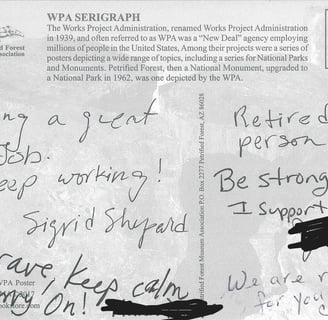 WPA SERIGRAPH
The Works Project Administration, renamed Works Project Administration
in 1939, and often referred to as WPA was a “New Deal” agency employing
millions of people in the United States, Among their projects were a series of
posters depicting a wide range of topics, including a series for National Parks
and Monuments. Petrified Forest, then a National Monument, upgraded to
a National Park in 1962, was one depicted by the WPA.
d Forest
ssociation
ng a great
Job.
eep working!
Sigrid Shepard
rave, keep calm
On!
PA Poster
2017
kstore.com
Petrified Forest Museum Association P.O. Box 2277 Petrified Forest, AZ 86028
Retired
person
Be strong
I support
We are
for you